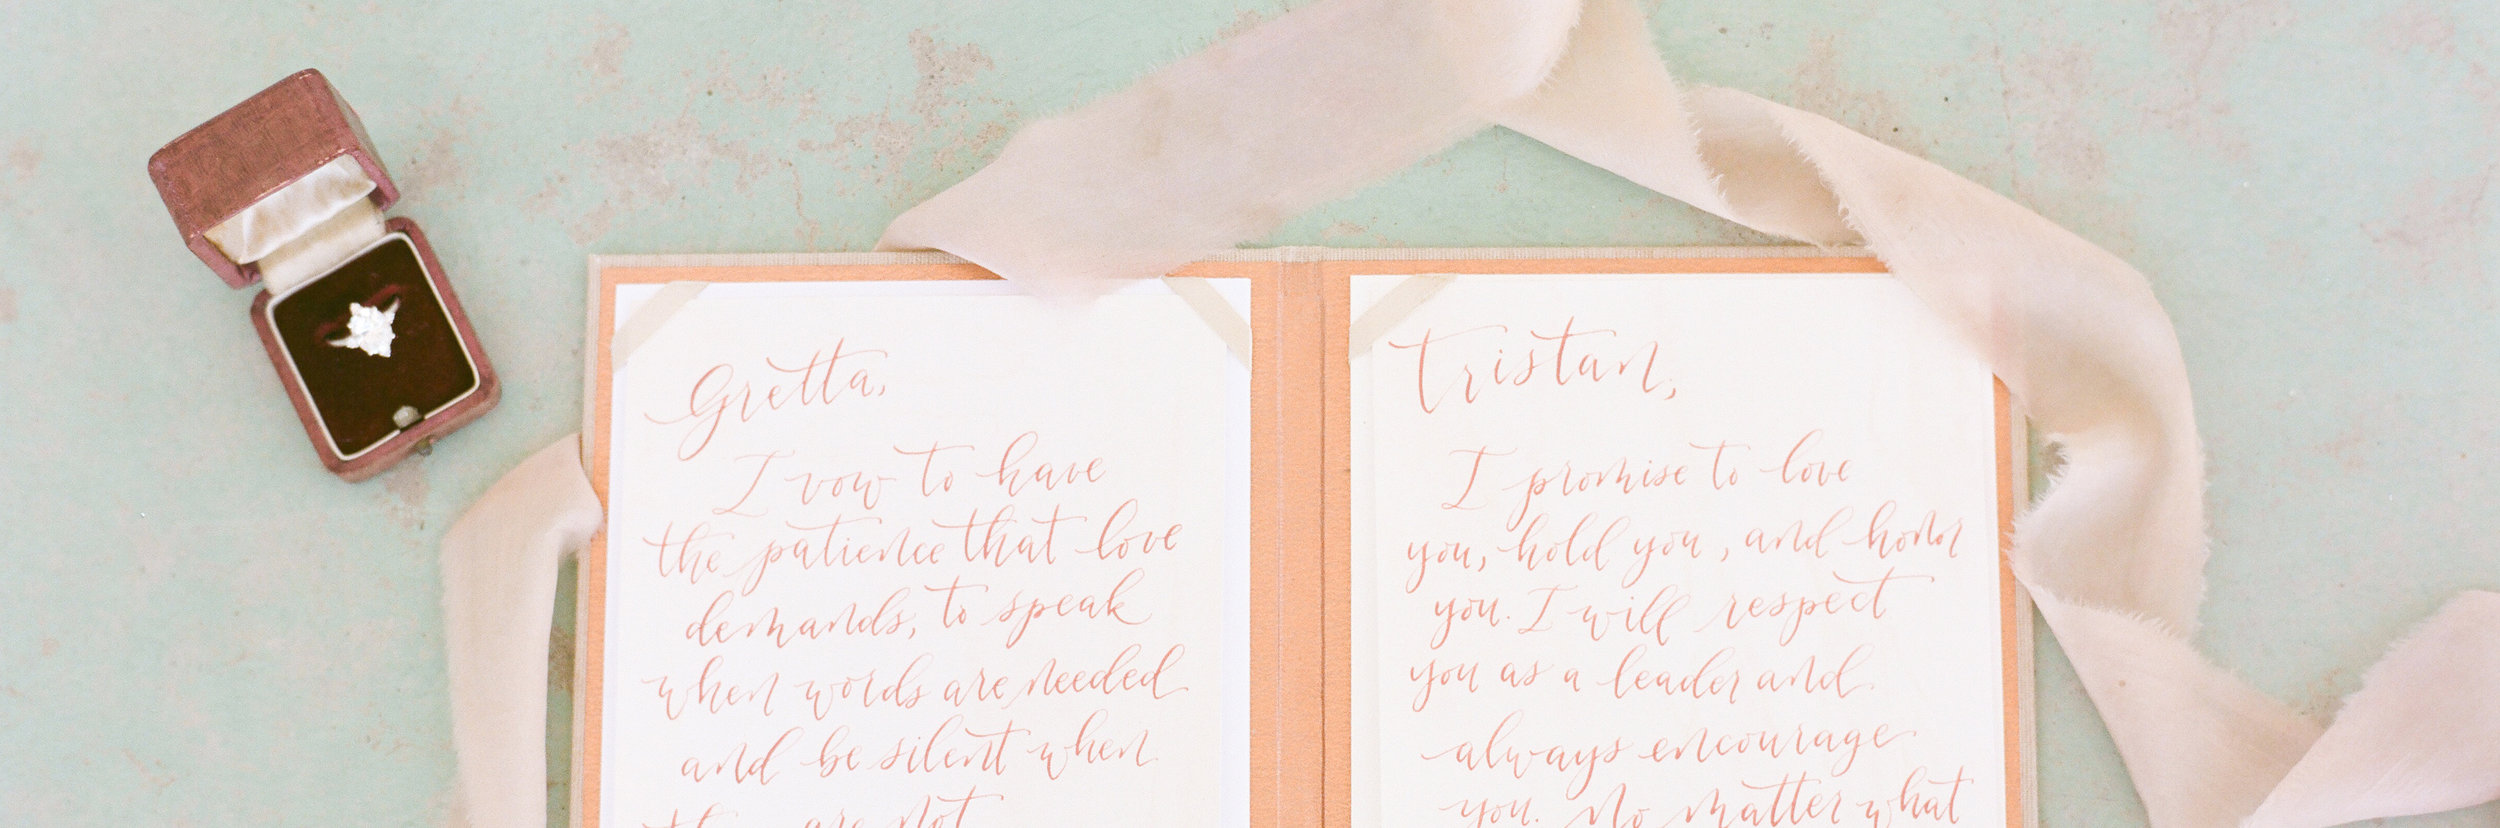 Gretta,
I vow to have
the patience that love
demands, to speak
when words are needed
and be silent when
they are not
Tristan,
I promise to love
you, hold you, and honor
you. I will respect
you as a leader and
always encourage
you. No matter what